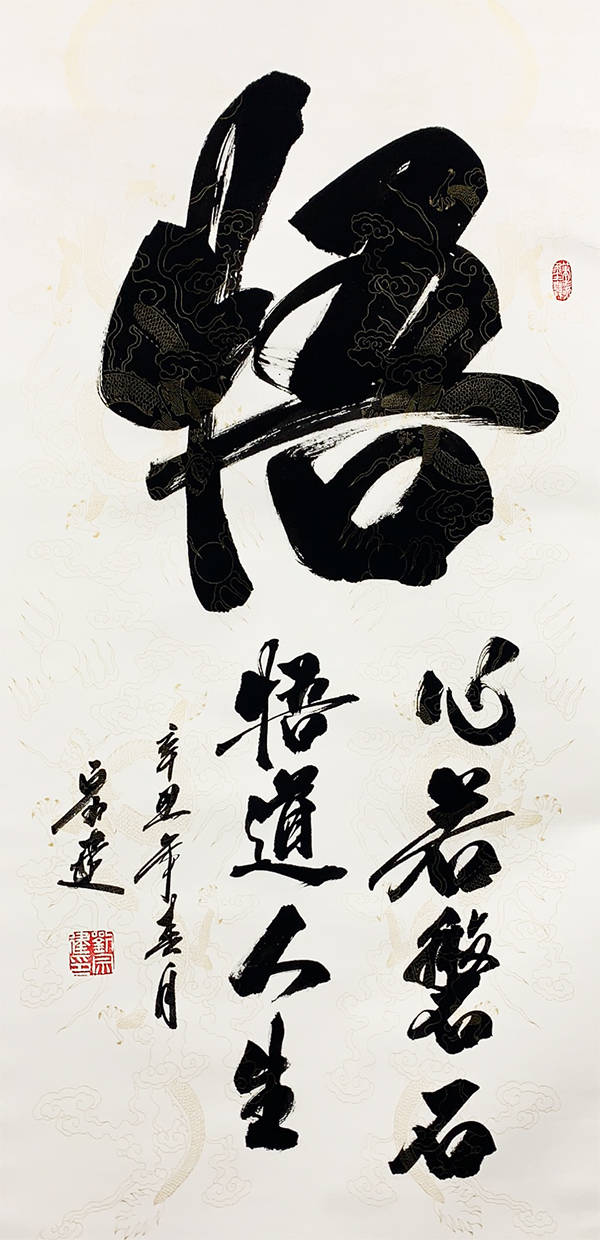 悟
心若磐石
悟道人生
辛丑年春月